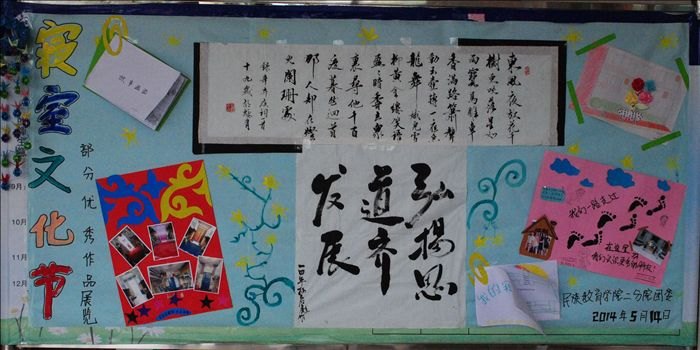 寝室文化节
部分优秀作品展览
東風夜放花千
樹更吹落星如
雨寶馬雕車
香滿路簫聲
龍舞蛾兒雪
柳黃金縷笑語
盈盈暗香去衆
裏尋他千百
度驀然回首
那人卻在燈
火闌珊處
弘揚思
道齐
发展
我们一路走过
在这里
我的
民族教育学院二分院团委
2014年5月14日
9月
10月
11月
12月